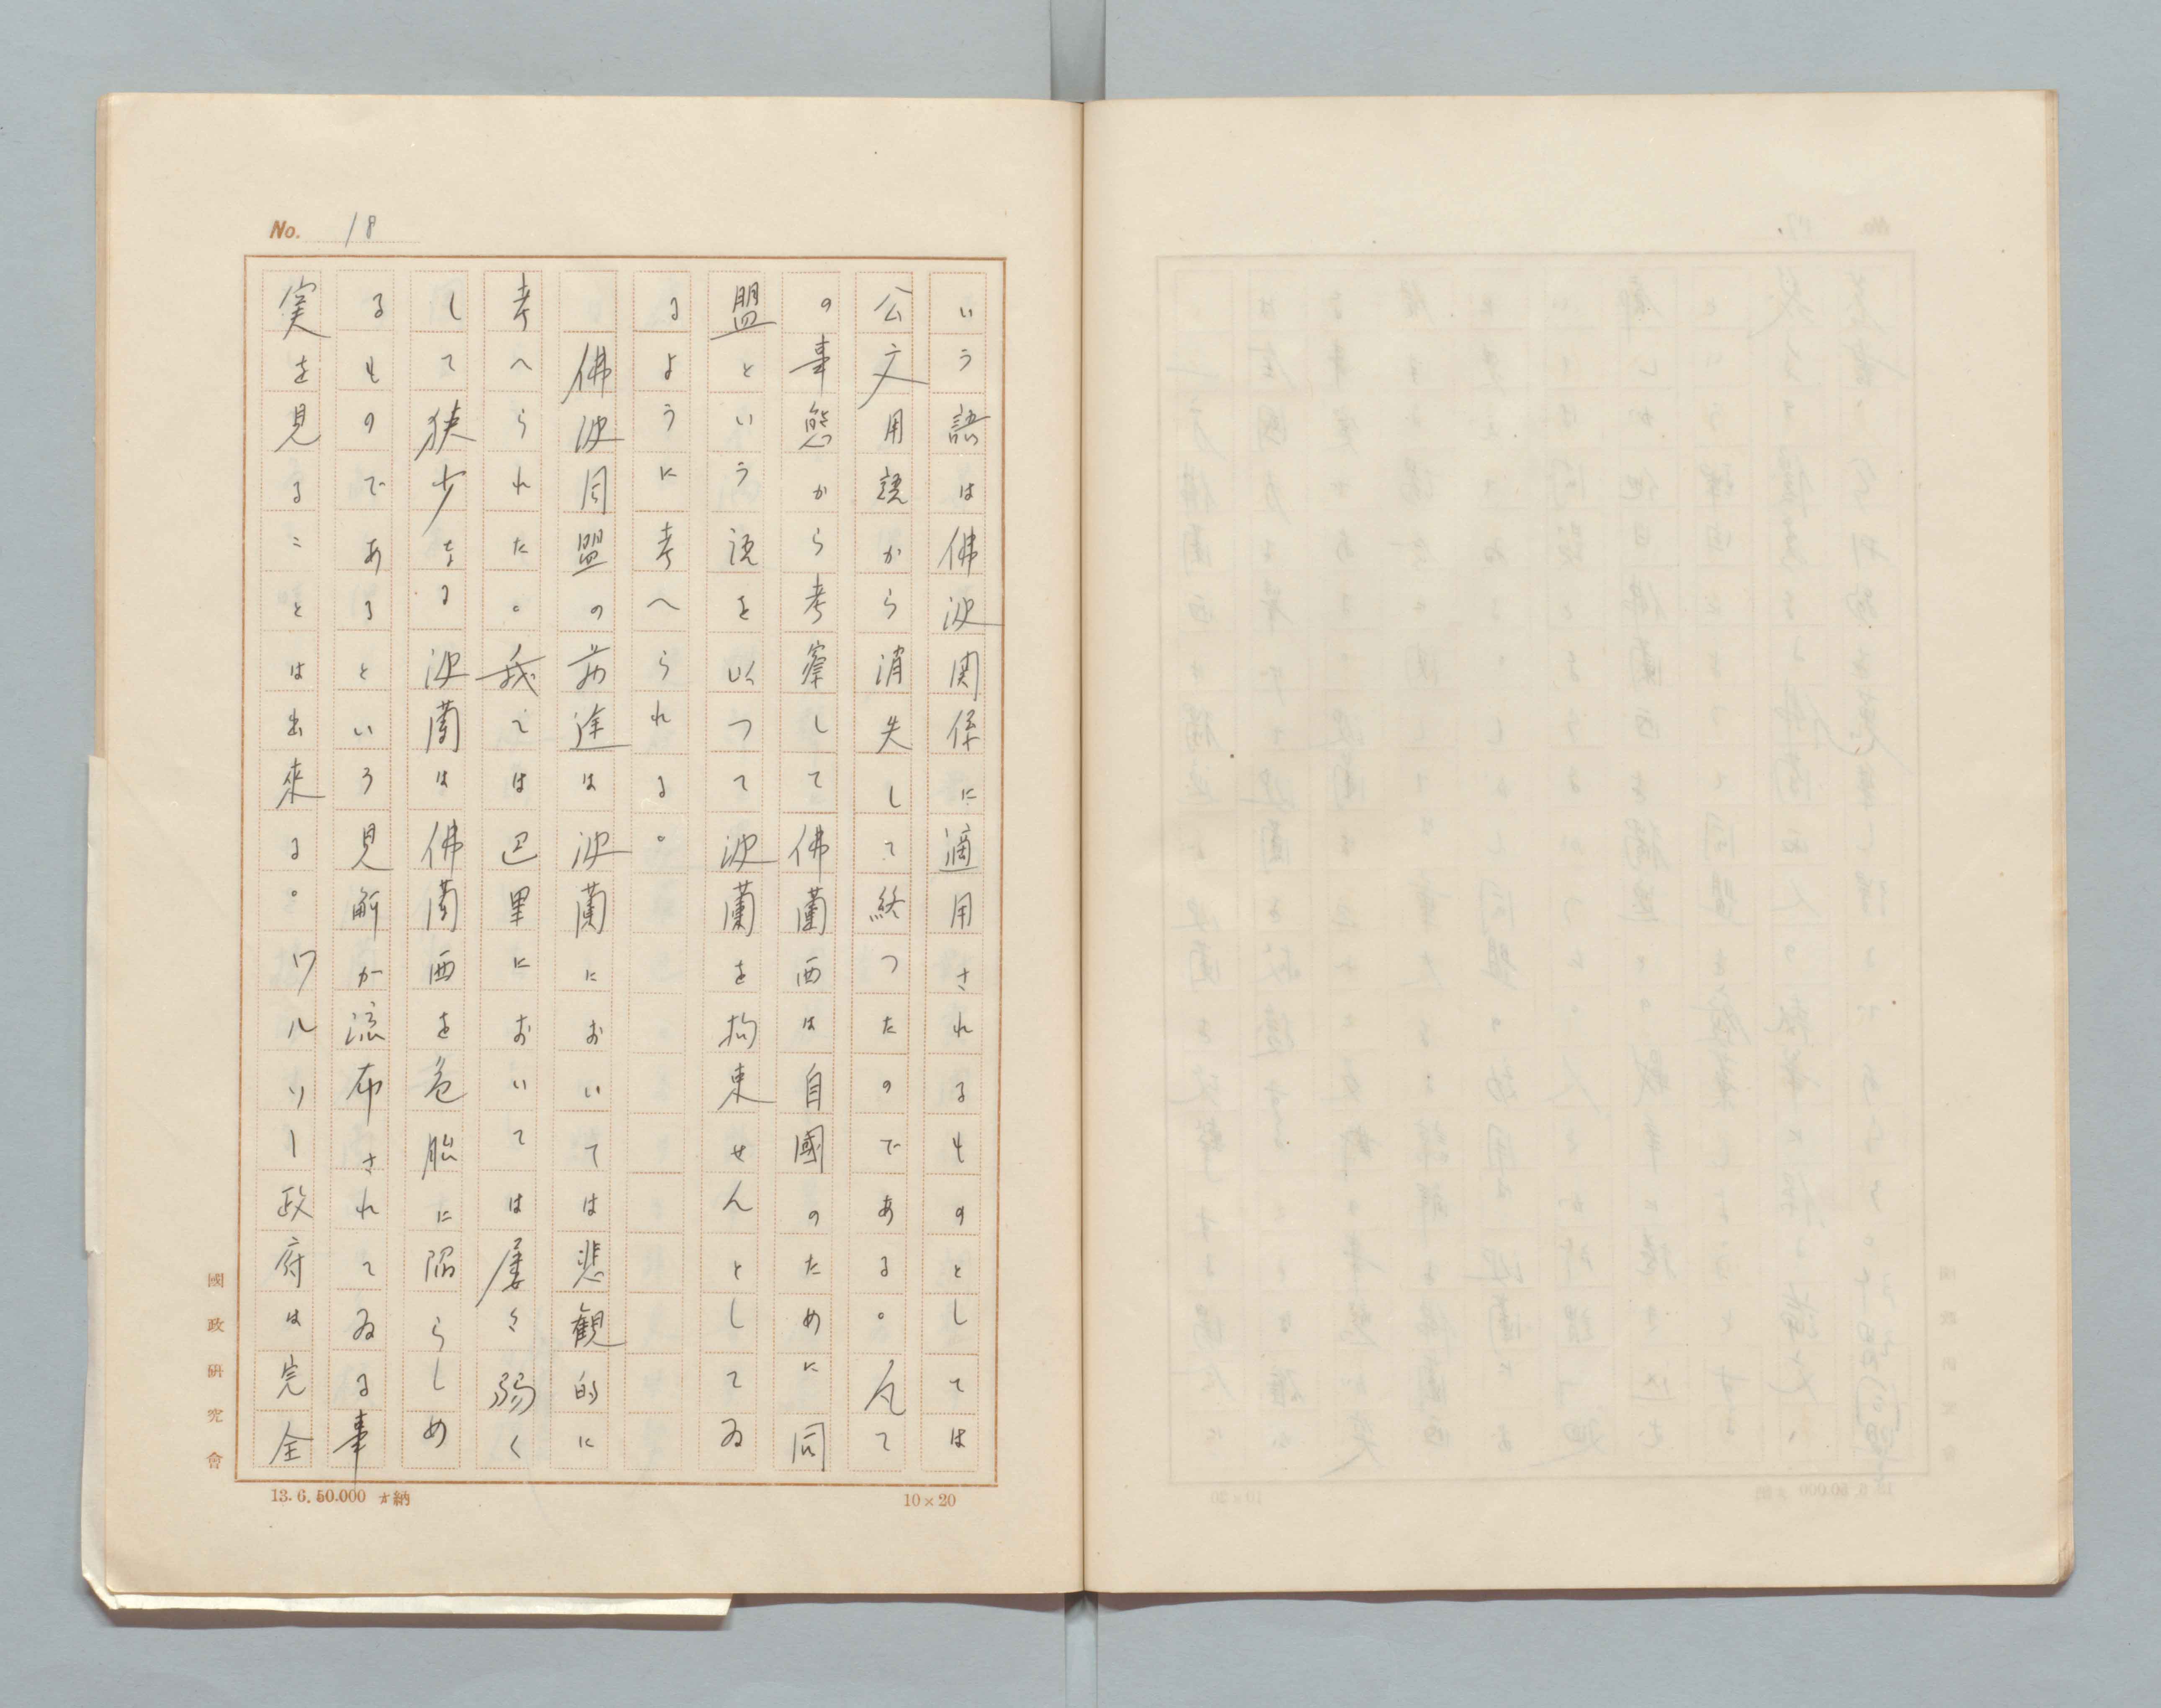 No. 18
いう語は佛波関係に適用されるものとしては
公文用語から消失して終つたのである。凡て
の事態から考察して佛蘭西は自國のために同
盟という語を以つて波蘭を拘束せんとしてゐ
るように考へられる。
佛波同盟の前途は波蘭においては悲観的に
考へられた。我ては巴里においては屡々弱く
して狭少なる波蘭は佛蘭西を危胎に陥らしめ
るものであるといろ見解が流布されてゐる事
実を見ることは出來る。ワルソー政府は完全
國政研究會
13.6.50.000 オ納
10×20